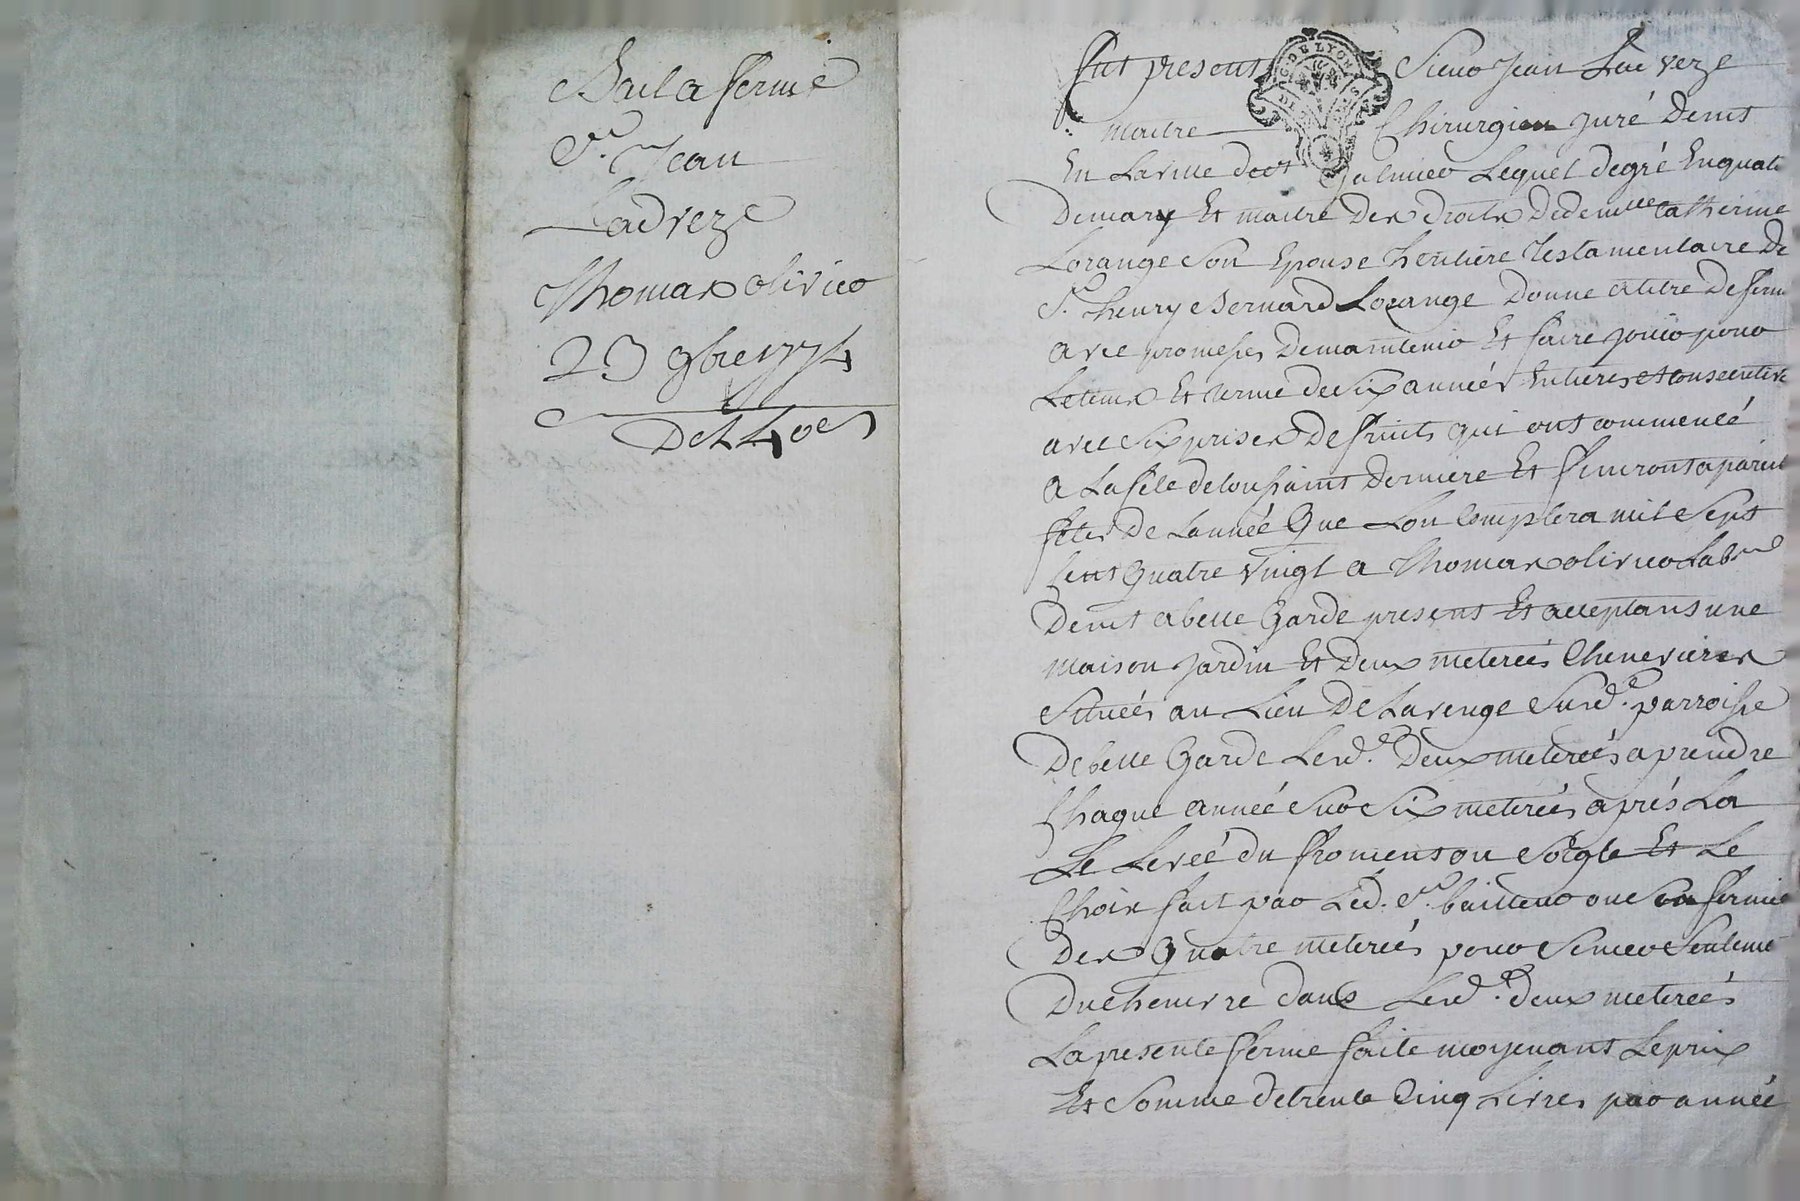 Bail a ferme
Sr. Jean
Ladveze
Thomas olivier
23 9bre 1774
De 240#
fut present Sieur Jean Ladveze
GNE. DE LYON
maitre Chirurgien juré demt
En La ville de st Galmier Lequel de gré En qualité
De mary Et maitre Des droits De demlle Catherine
Lorange Son Epouse heritiere testamentaire De
Sr. henry Bernard Lorange Donne a titre De ferme
avec promesses De maintenir Et faire jouir pour
Le tems Et terme de Six années Entieres et consecutives
avec Six prises De fruits qui ont commencé
a La fete de toussaint Derniere Et finiront a pareil
fete De L'année Que Lon Comptera mil Sept
Cent Quatre vingt a Thomas olivier Labr
Demt a belle Garde present Et acceptant une
maison jardin Et Deux meterées Chenevieres
Situées au Lieu De Lavenge Susde. parroisse
De belle Garde Lesd. Deux meterées a prendre
Chaque année Sur Six meterées après La
Le Levée du froment ou Seigle Et Le
Choix fait par Led. Sr. bailleur ou Son fermier
Des Quatre meterées pour Semer Seulemt
Du chenevre dans Lesd. deux meterées
La presente ferme faite moyenant Le prix
Et Somme de trente Cinq Livres par année